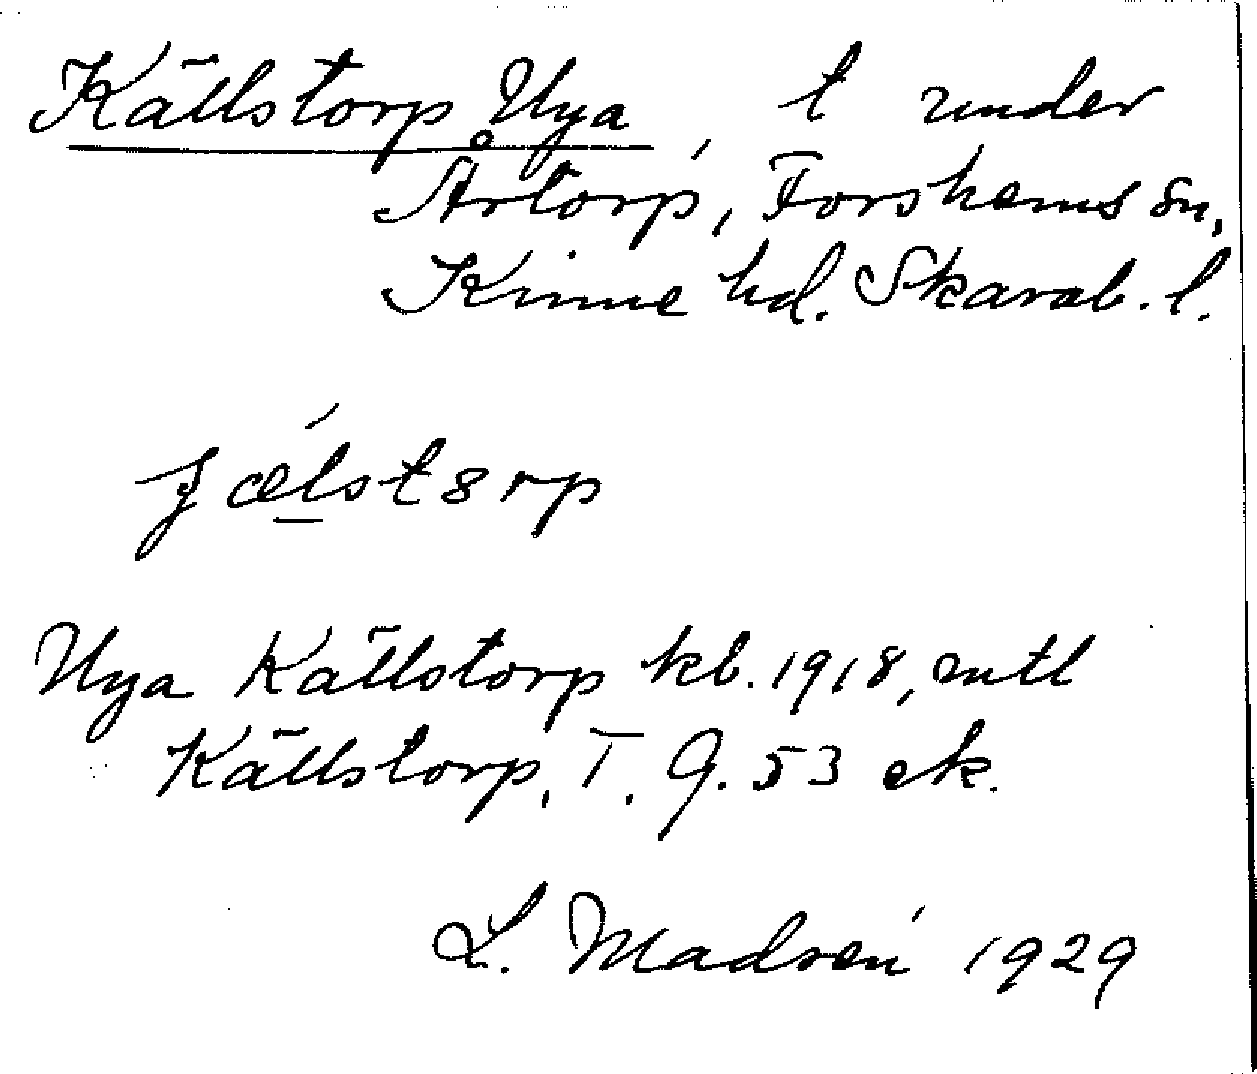 Källstorp, Nya, t under
Årtorp, Forshems sn,
Kinne hd. Skarab. l.
ʃælstɵrp
Nya Källstorp kb. 1918, mtl
Källstorp, T. G. 53 ek.
L. Madsén 1929